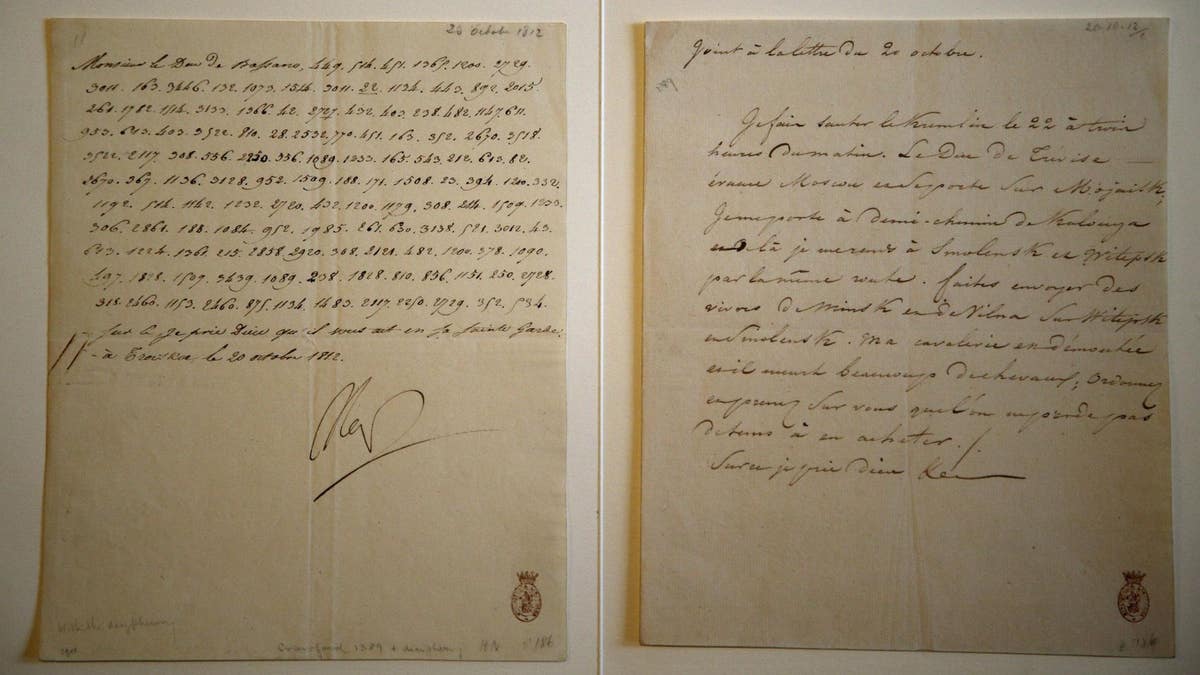 20 Octobre 1812
Monsieur le Duc de Bassano, 449. 514. 451. 1365. 1200. 2729.
3011. 163. 3446. 132. 1073. 1514. 3011. 22. 1134. 443. 892. 2015.
261. 1782. 1514. 3133. 1366. 42. 2727. 432. 403. 238. 482. 1147. 611.
953. 643. 403. 3522. 810. 28. 2532. 770. 451. 163. 352. 2670. 3518.
3522. 2117. 308. 536. 2250. 336. 1089. 1233. 165. 543. 212. 613. 82.
3670. 367. 1136. 3128. 952. 1509. 188. 171. 1508. 23. 394. 1200. 332.
1192. 514. 1142. 1232. 2720. 432. 1200. 1179. 308. 1509. 1233.
306. 2861. 188. 1084. 952. 1985. 261. 630. 3138. 521. 3012. 43.
1224. 1361. 215. 2858. 2920. 308. 2121. 482. 1200. 378. 1090.
497. 1828. 1507. 3439. 1089. 238. 1828. 810. 836. 1151. 250. 2728.
318. 2460. 1153. 2460. 875. 1134. 1483. 2117. 2250. 2729. 352. 534.
Sur ce je prie Dieu qu'il vous ait en sa Sainte Garde
à le 20 octobre 1812.
Crawford 1389 + MN 186
20-10-12
Joint à la lettre du 20 octobre.
Je fais sauter le Kremlin le 22 à trois
heures du matin. Le Duc de Trévise
évacue Moscou et se porte sur Mojaïsk;
Je me porte à demi-chemin de Kalouga
et de là je me rends à Smolensk et Witepsk
par la même route. faites envoyer des
vivres de Minsk et de Vilna sur Witepsk
et Smolensk. Ma cavalerie est démontée
et il meurt beaucoup de chevaux; Ordonnez
et prenez sur vous que l'on ne perde pas
de tems à en acheter.
Sur ce je prie Dieu
186